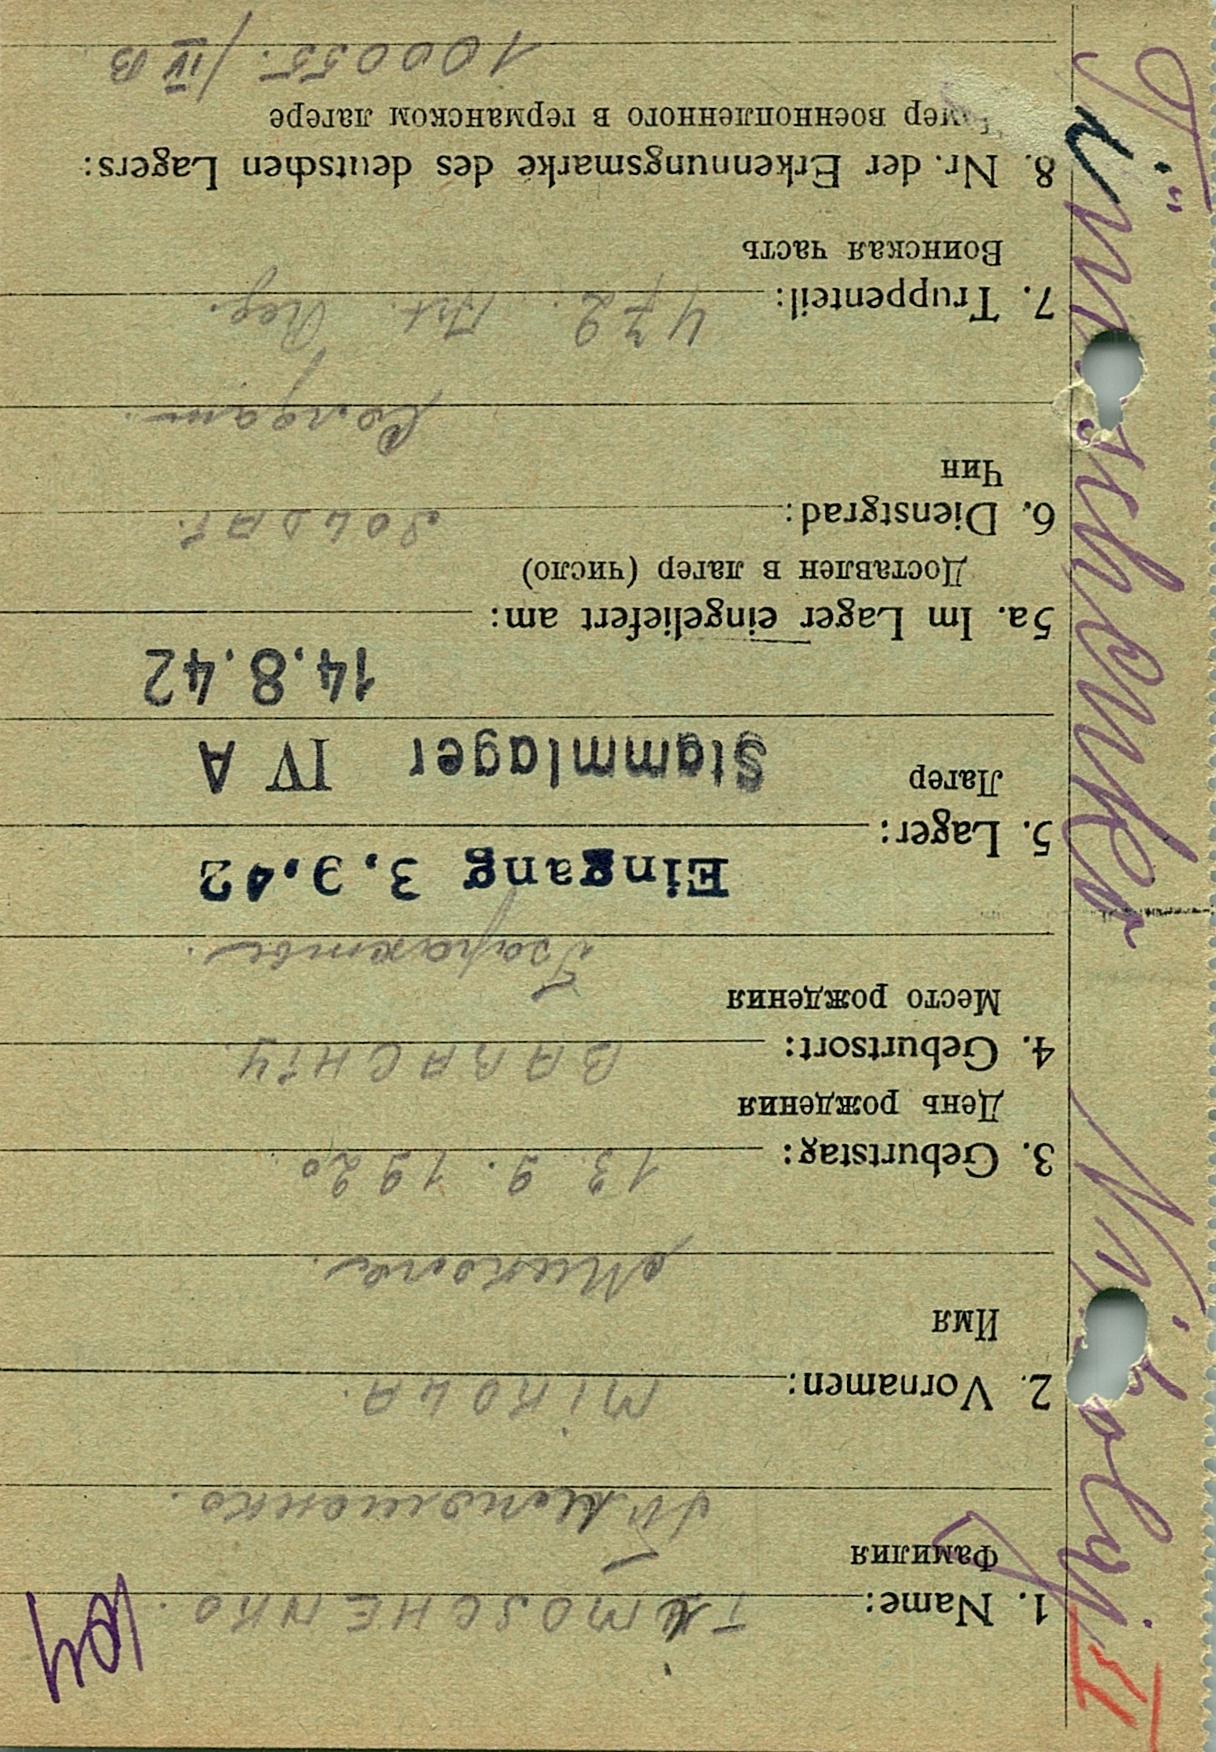 Timoschenko Nikolaj II
164
1. Name: TIMOSCHENKO.
Фамилия Тимошенко.
2. Vornamen: MIKOLA.
Имя Микола.
3. Geburtstag: 13. 9. 1920
День рождения
4. Geburtsort: BARACHTY.
Место рождения Барахты.
Eingang 3.9.42
5. Lager:
Лагер
Stammlager IV A
14.8.42
5a. Im Lager eingeliefert am:
Доставлен в лагер (число)
6. Dienstgrad: SOLDAT.
Чин
Солдат.
7. Truppenteil: 472. Art. Reg.
Воинская часть
8. Nr. der Erkennungsmarke des deutschen Lagers:
военнопленного в германском лагере
100055. / IV B